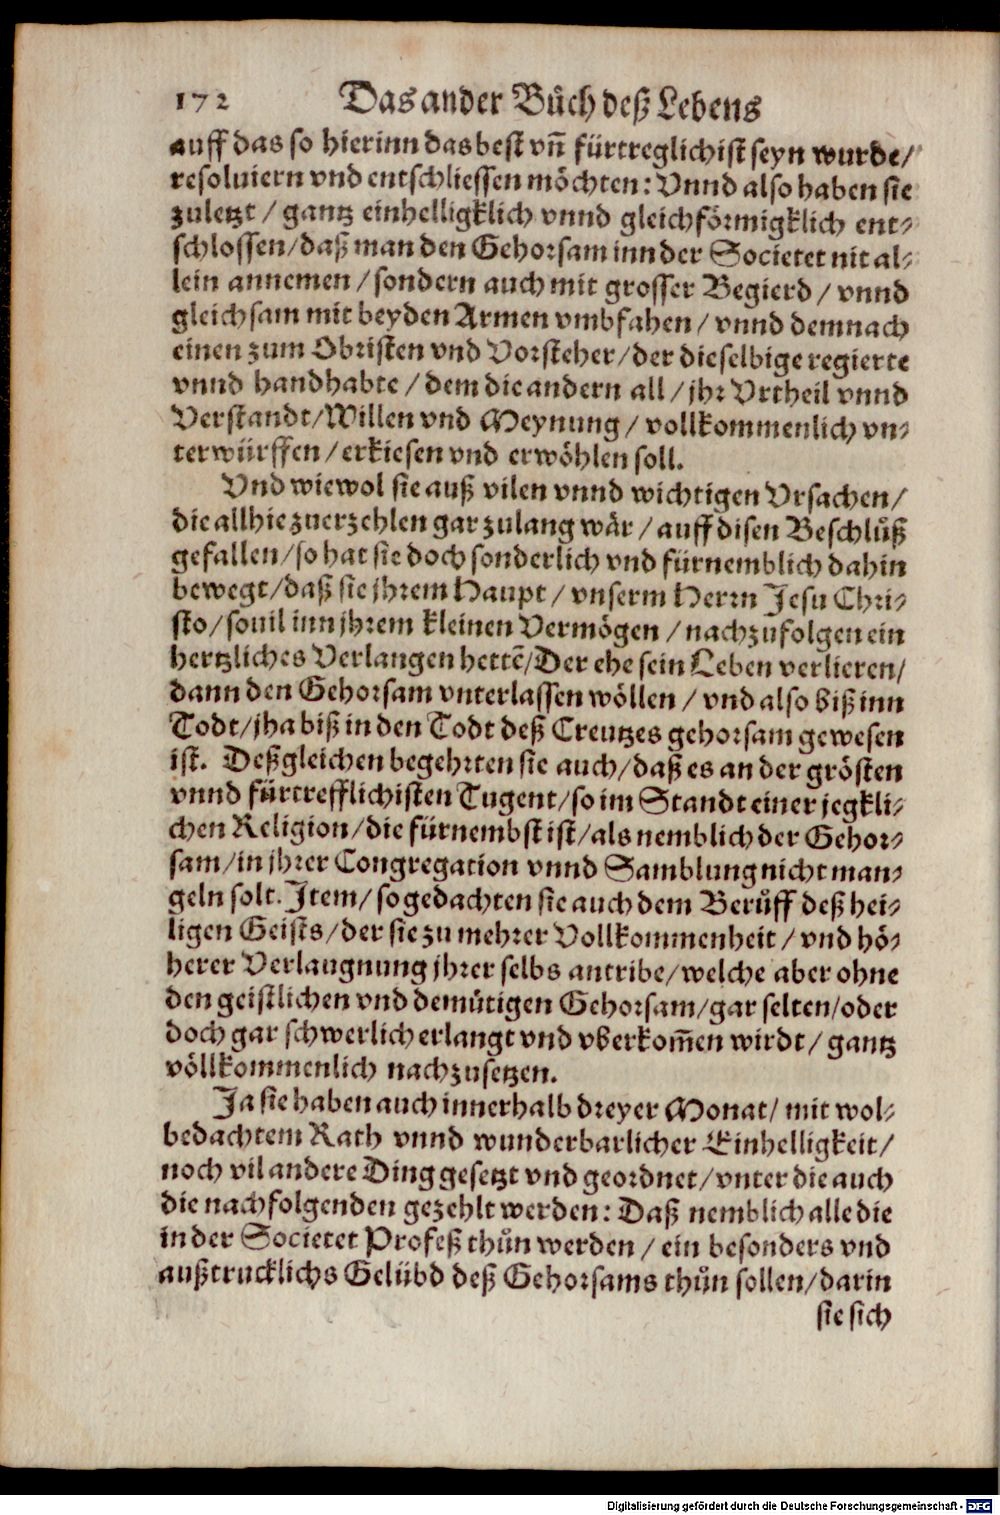 172 Das ander Bůch deß Lebens
auff das so hierinn das best vñ fürtreglichist seyn wurde/
resoluiern vnd entschliessen möchten: Vnnd also haben sie
zuletzt / gantz einhelligklich vnnd gleichförmigklich ent-
schlossen/daß man den Gehorsam inn der Societet nit al-
lein annemen / sondern auch mit grosser Begierd / vnnd
gleichsam mit beyden Armen vmbfahen / vnnd demnach
einen zum Obristen vnd Vorsteher/der dieselbige regierte
vnnd handhabte / dem die andern all / jhr Vrtheil vnnd
Verstandt/Willen vnd Meynung / vollkommenlich vn-
terwürffen / erkiesen vnd erwöhlen soll.
Vnd wiewol sie auß vilen vnnd wichtigen Vrsachen/
die allhie zuerzehlen gar zulang wär / auff disen Beschlůß
gefallen/so hat sie doch sonderlich vnd fürnemblich dahin
bewegt/daß sie jhrem Haupt / vnserm Herrn Jesu Chri-
sto/souil inn jhrem kleinen Vermögen / nachzufolgen ein
hertzliches Verlangen hettẽ/Der ehe sein Leben verlieren/
dann den Gehorsam vnterlassen wöllen / vnd also biß inn
Todt/jha biß in den Todt deß Creutzes gehorsam gewesen
ist. Deßgleichen begehrten sie auch/daß es an der grösten
vnnd fürtrefflichisten Tugent/so im Standt einer jegkli-
chen Religion/die fürnembst ist/als nemblich der Gehor-
sam/in jhrer Congregation vnnd Samblung nicht man-
geln solt. Item/so gedachten sie auch dem Berůff deß hei-
ligen Geists/der sie zu mehrer Vollkommenheit / vnd hö-
herer Verlaugnung jhrer selbs antribe/welche aber ohne
den geistlichen vnd demütigen Gehorsam/gar selten/oder
doch gar schwerlich erlangt vnd vberkom̃en wirdt / gantz
völlkommenlich nachzusetzen.
Ja sie haben auch innerhalb dreyer Monat/ mit wol-
bedachtem Rath vnnd wunderbarlicher Einhelligkeit/
noch vil andere Ding gesetzt vnd geordnet/vnter die auch
die nachfolgenden gezehlt werden: Daß nemblich alle die
in der Societet Profeß thůn werden / ein besonders vnd
außtrucklichs Gelübd deß Gehorsams thůn sollen/darin
sie sich
Digitalisierung gefördert durch die Deutsche Forschungsgemeinschaft - DFG